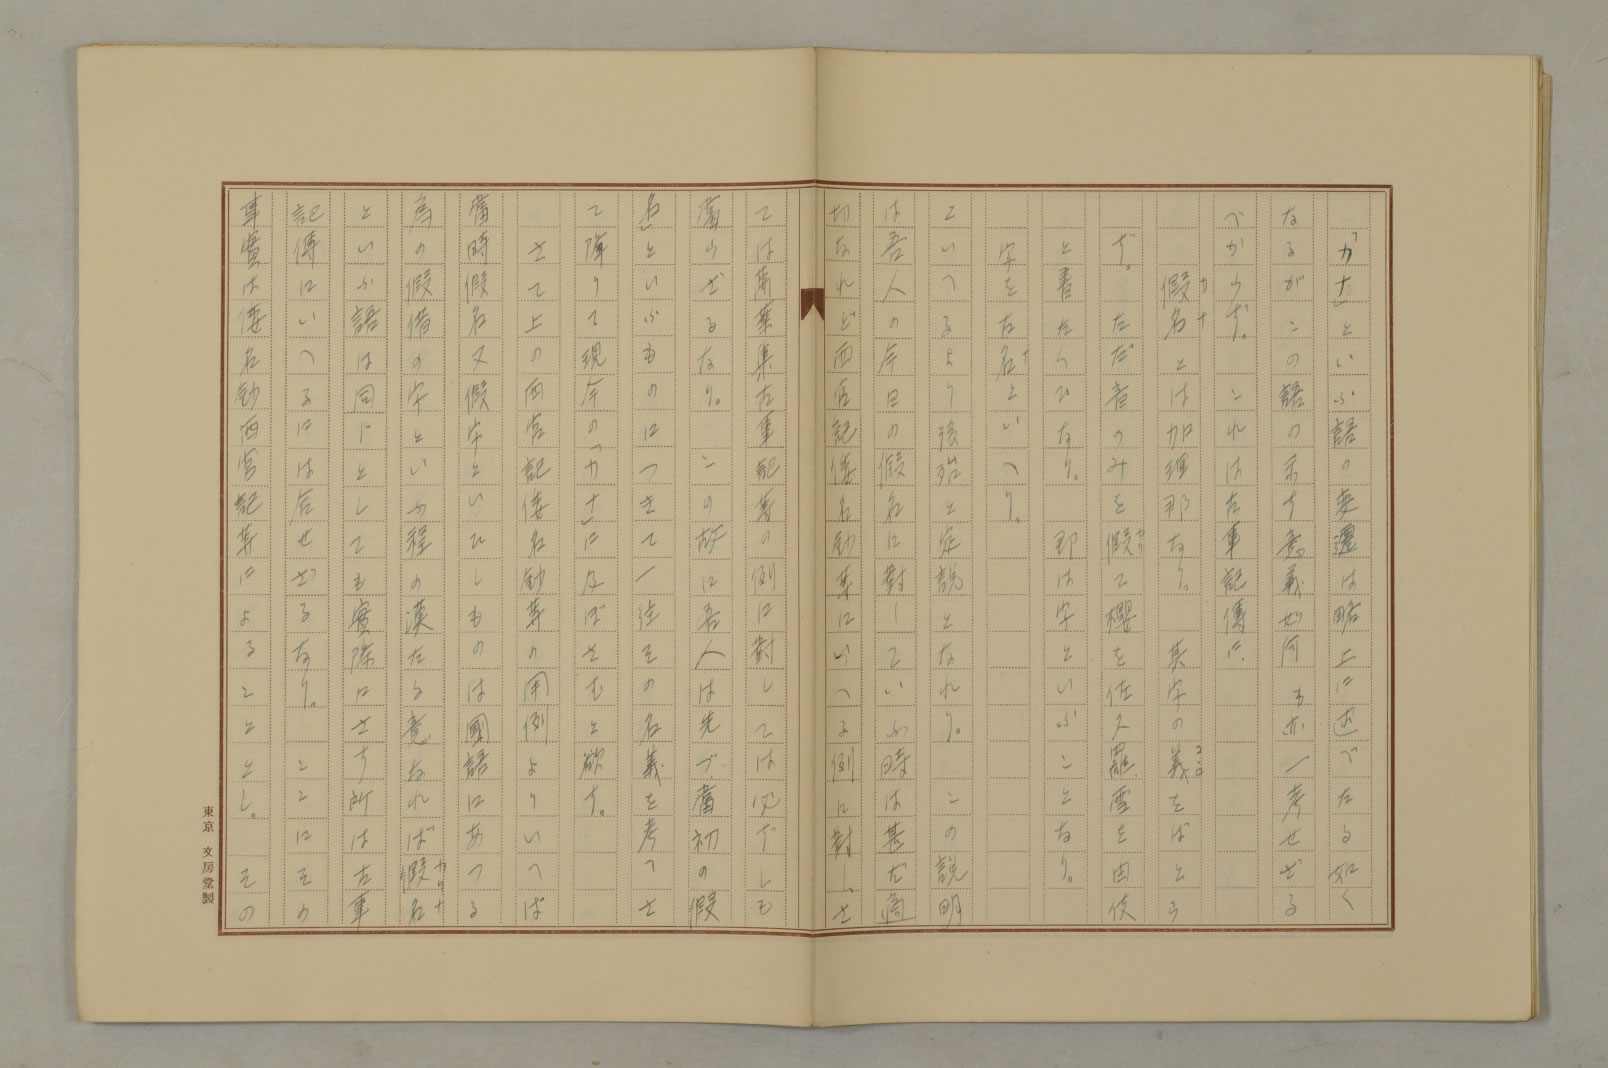 「カナ」といふ語の変遷は略上に述べたる如く
なるがこの語の示す意義如何も亦一考せざる
べからず。これは古事記傳に、
假名とは加理那なり。其字の義をばとら
カナ
コヽロ
ず。ただ音のみを假て櫻を佐久羅、雪を由伎
カリ
と書たぐひなり。那は字といふことなり。
字を古名といへり。
ナ
といへるより殆と定説となれり。この説明
は吾人の今日の假名に對していふ時は甚だ適
切なれど西宮記倭名鈔等にいへる例に對し、さ
ては萬葉集古事記等の例に對しては必ずしも
當らざるなり。この故に吾人は先づ、當初の假
名」といふものにつきて一往その名義を考へさ
て降りて現今の「カナ」に及ぼさむと欲す。
さて上の西宮記倭名鈔等の用例よりいへば
當時假名又假字といひしものは國語にあつる
為の假借の字といふ程の漢たる意なれば假名
カリナ
といふ語は同じとしても實際にさす所は古事
記傳にいへるには合せざるなり。ここにその
事實は倭名鈔西宮記等によることとし。その
東京 文房堂製